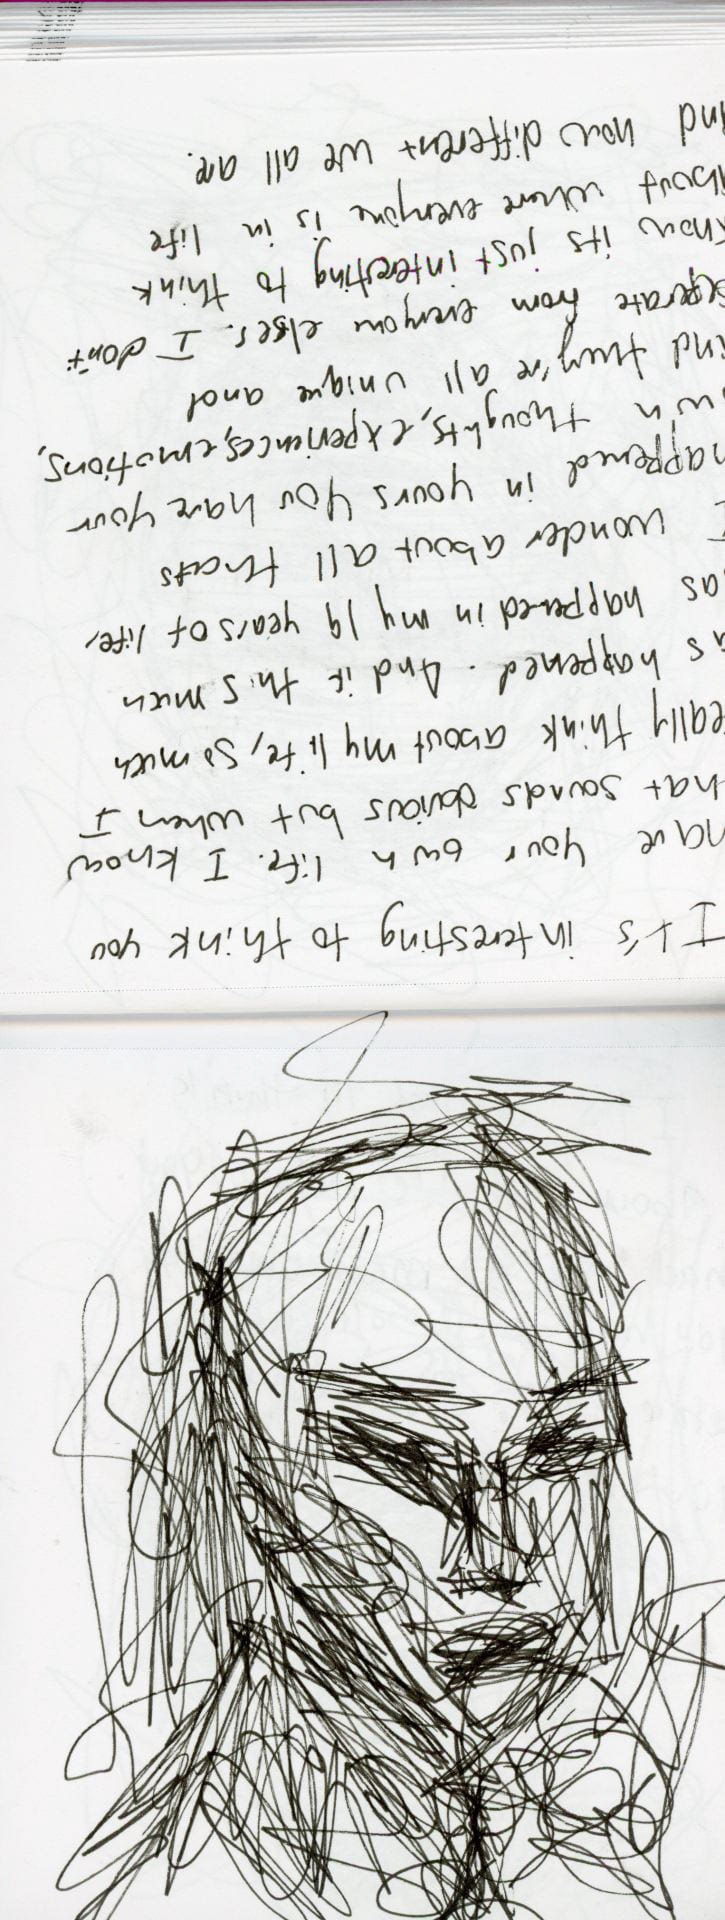 It's interesting to think you
have your own life. I know
that sounds obvious but when I
really think about my life, so much
has happened. And if this much
has happened in my 19 years of life,
I wonder about all thats
happened in yours you have your
own thoughts, experiences, emotions,
and they're all unique and
seperate from everyone elses. I don't
know its just interesting to think
about where everyone is in life
and how different we all are.